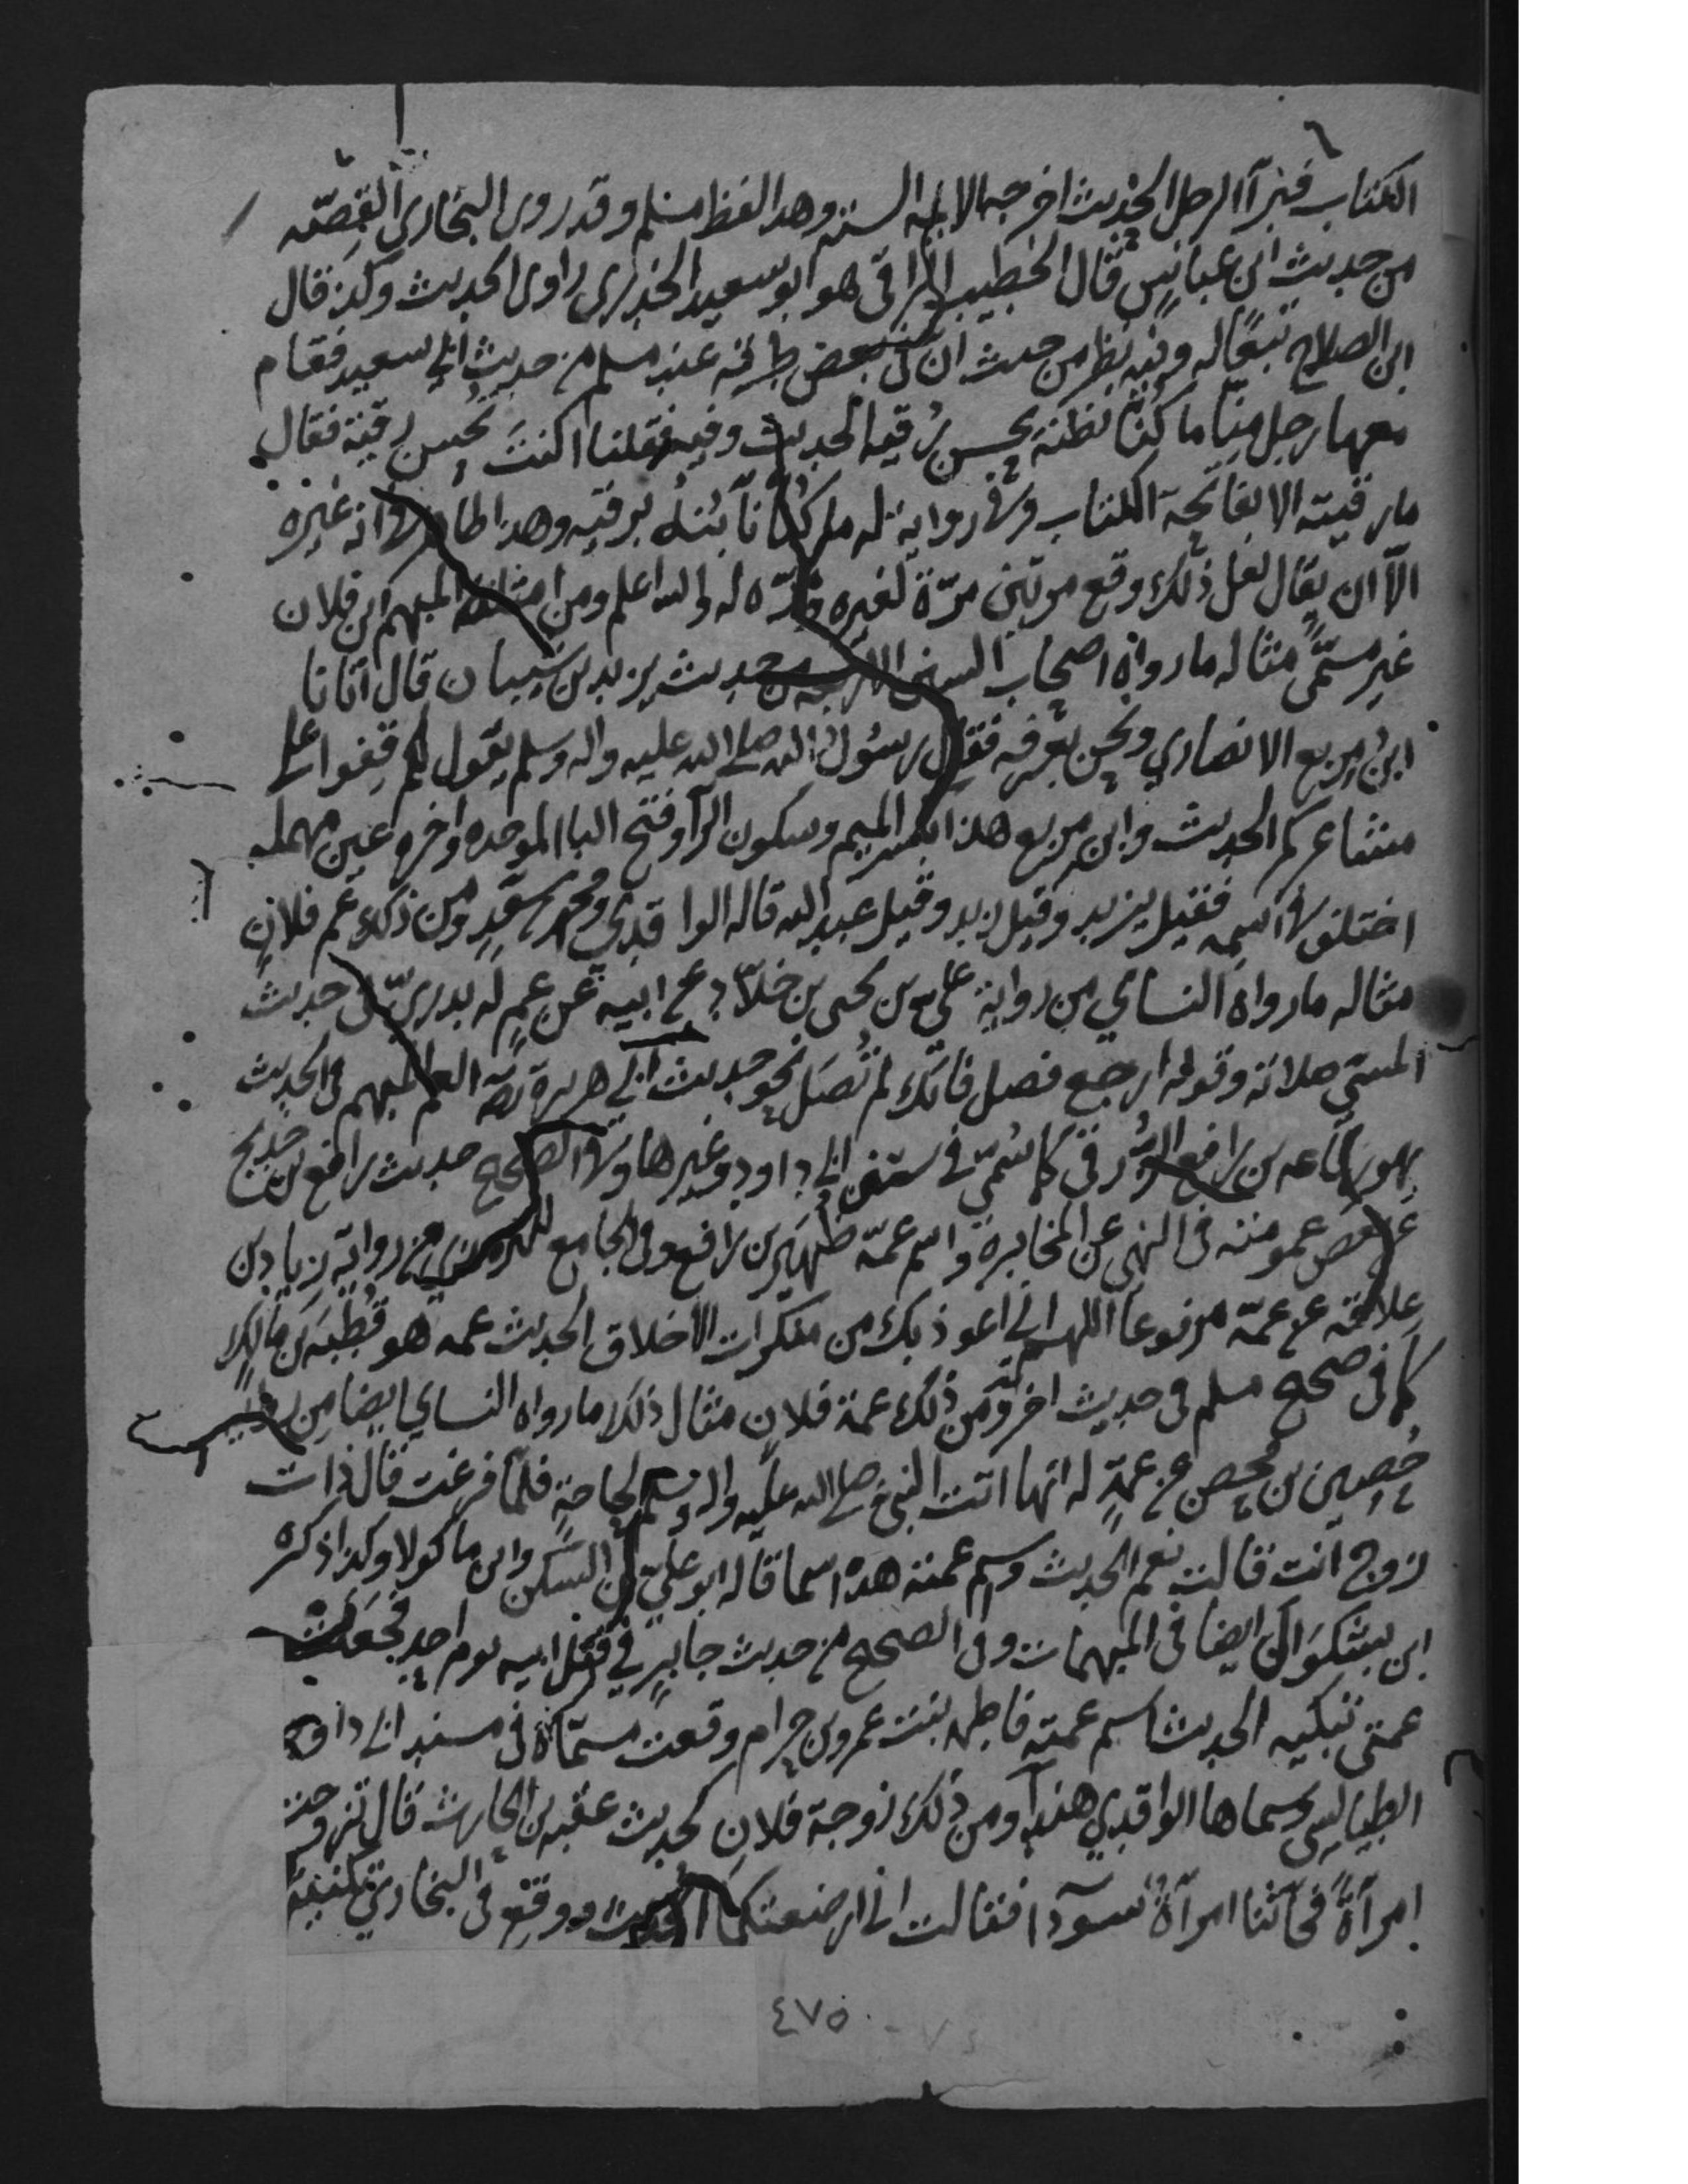 الكتاب فبرأ الرجل الحديث اخرجه الايمة الستة وهذا لفظ مسلم وقد روى البخارى القصّة
من حديث ابن عباس قال الخطيب الراقى هو ابو سعيد الخدرى راوى الحديث وكذا قال
ابن الصلاح تبعًا له وفيه نظر من حيث ان فى بعض طرقه عند مسلم من حديث ابى سعيد فقام
معها رجل منّا ما كنّا نظنه يحسن رُقيه الحديث وفيه فقلنا اكنتَ تحسن رقية فقال
ما رقيته الا بفاتحة الكتاب وفى رواية له ما كنّا نأبنه برقيه وهذا ظاهر فى انه غيره
الّا ان يقال لعل ذلك وقع مرتين مرّة لغيره ومرّه له والله اعلم ومن امثلة المبهم ابن فلان
غير مسمّى مثاله ما رواه اصحاب السنن الاربعه من حديث يزيد بن شيبان قال اتانا
ابن مربع الانصاري ونحن بعرفه فقال رسول الله صلى الله عليه واله وسلم يقول لكم قفوا على
مشاعركم الحديث وابن مربع هذا بكسر الميم وسكون الرآ وفتح البا الموحده واخره عين مهمله
اختلف فى اسمه فقيل يزيد وقيل زيد وقيل عبد الله قاله الواقدي ومحمد بن سعدٍ ومن ذلك عم فلانٍ
مثاله ما رواه النساي من رواية على بن يحيى بن خلّاد عن ابيه عن عمٍ له بدريّ فى حديث
المسىٔ صلاته وقوله ارجع فصل فانّك لم تُصَل نحو حديث ابى هريرة العم المبهم فى الحديث
هو رفاعه بن رافع الزُّرقى كما سُمّى في سنن ابى داود وغيرها وفى الصحيح حديث رافع بن خديج
عن بعض عمومته فى النهى عن المخابرة واسم عمّه ظُهَير بن رافع وفى الجامع للترمذي من رواية زياد بن
علاقه عن عمّه مرفوعا اللهم انى اعوذ بك من منكرات الاخلاق الحديث عمه هو قُطبَه بن مالك
كما فى صحيح مسلم فى حديث اخر ومن ذلك عمة فلان مثال ذلك ما رواه النساي ايضا من رواية
حُصين بن محصن عن عمةٍ له انها اتت النبى صلى الله عليه واله وسلم لحاجةٍ فلمّا فرغت قال اذات
زوج انت قالت نعم الحديث واسم عمته هذه اسما قاله ابو علىّ بن السّكن وابن ماكولا وكذا ذكره
ابن بشكوَال ايضا فى المبهمات وفى الصحيح من حديث جابرٍ في قتل ابيه يوم احدٍ فجعلت
عمتى تبكيه الحديث اسم عمّته فاطمه بنت عمرو بن حرام وقعت مسمّاةً فى مسند ابى داود
الطيالسى وسماها الواقدي هندًا ومن ذلك زوجة فلانٍ كحديث عقبه بن الحارث قال تزوجت
امرأةً فجآئتنا امرأةٌ سوّدا فقالت انى ارضعتكما الحديث ووقع فى البخاري تكنية
٤٧٥